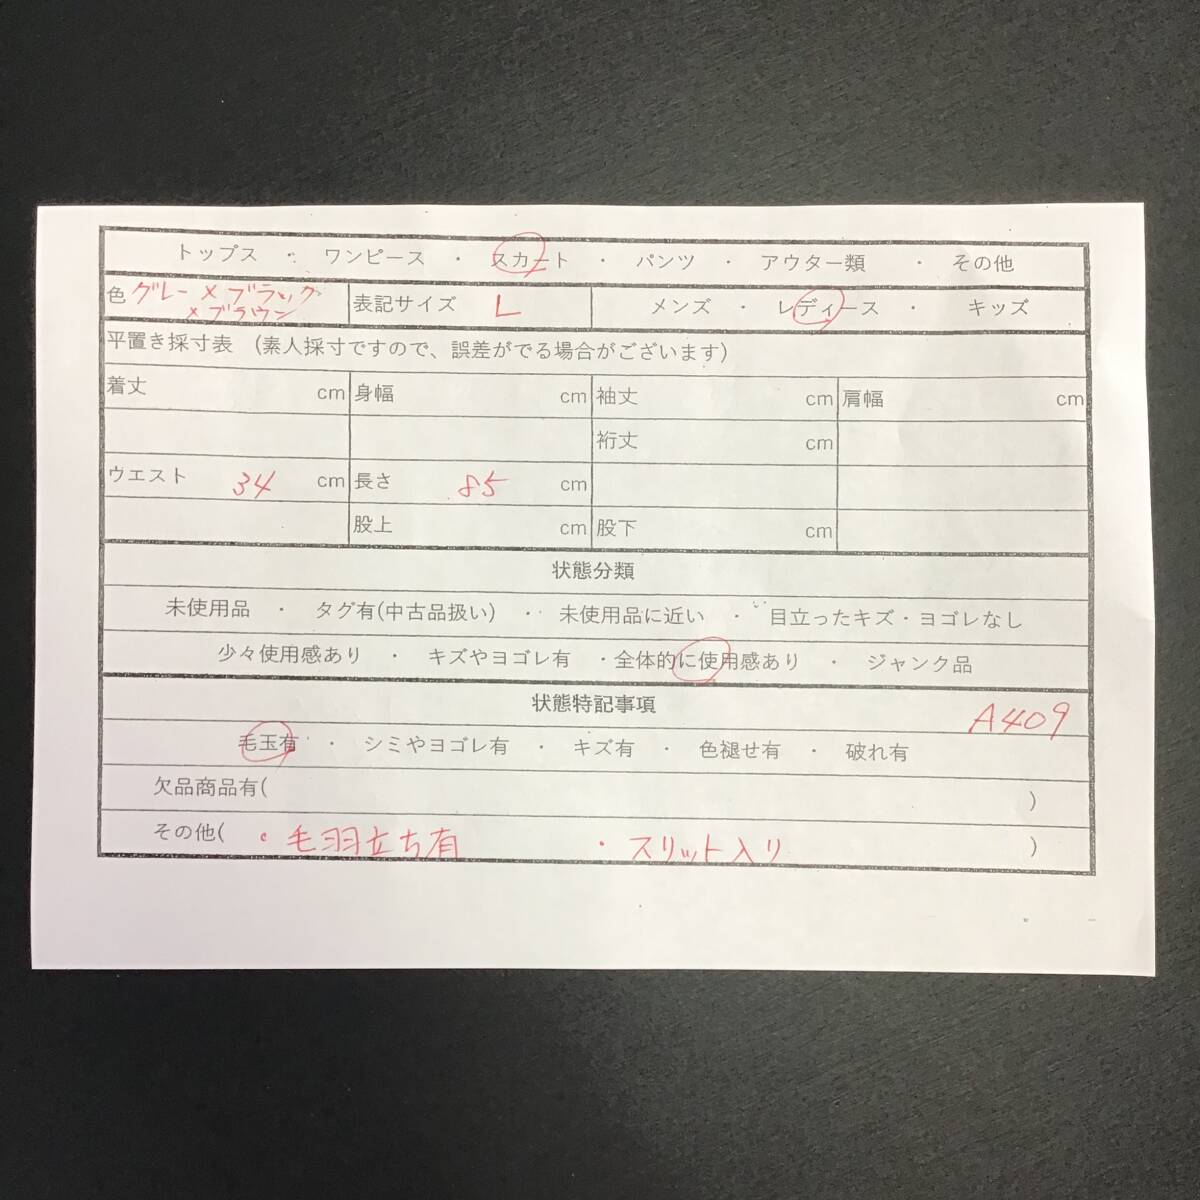 トップス ・ ワンピース ・ スカート ・ パンツ ・ アウター類 ・ その他
色 グレー×ブラック 表記サイズ L メンズ ・ レディース ・ キッズ
×ブラウン
平置き採寸表 (素人採寸ですので、誤差がでる場合がございます)
着丈 cm 身幅 cm 袖丈 cm 肩幅 cm
裄丈 cm
ウエスト 34 cm 長さ 85 cm
股上 cm 股下 cm
状態分類
未使用品 ・ タグ有(中古品扱い) ・ 未使用品に近い ・ 目立ったキズ・ヨゴレなし
少々使用感あり ・ キズやヨゴレ有 ・全体的に使用感あり ・ ジャンク品
状態特記事項
A409
毛玉有 ・ シミやヨゴレ有 ・ キズ有 ・ 色褪せ有 ・ 破れ有
欠品商品有( )
その他( ・毛羽立ち有 ・スリット入り )